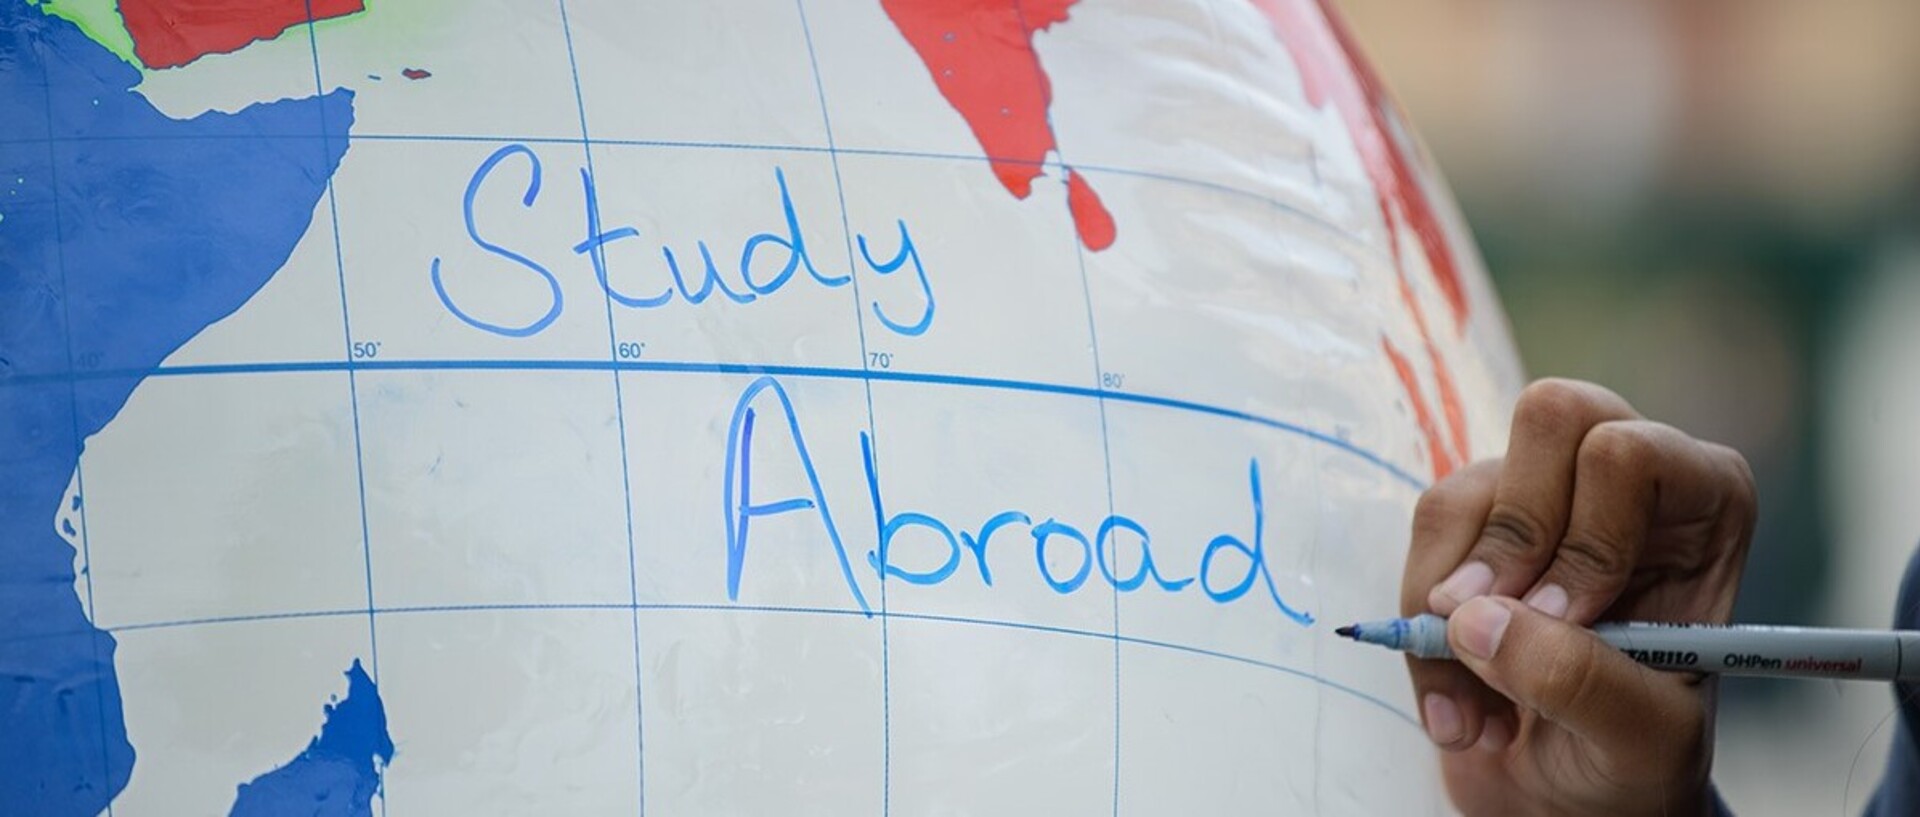 Study
40° 50° 60° 70° 80°
Abroad
STABILO OHPen universal